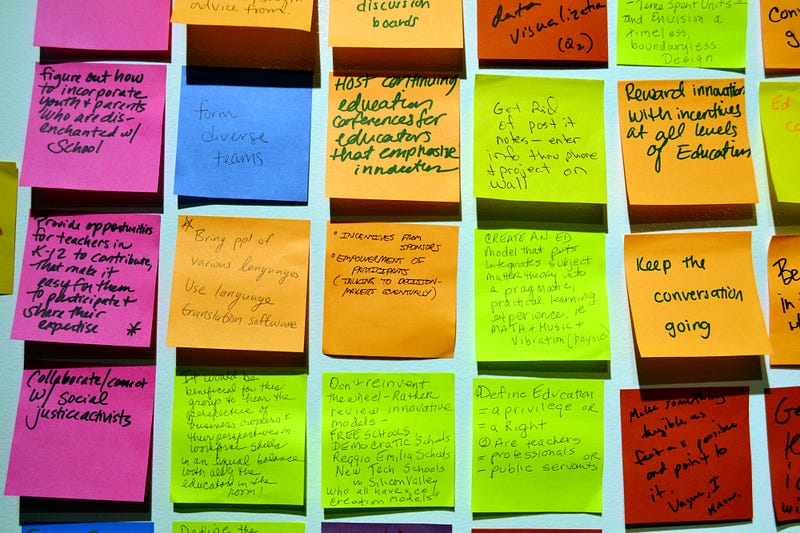 advice from.
discussion
boards
data
visualization
(Q2)
- Time Spent Units
and Envision a
timeless,
boundaryless
Design
figure out how
to incorporate
youth + parents
who are dis-
enchanted w/
School
form
diverse
teams
Host continuing
education
conferences for
educators
that emphasize
innovation
Get Rid
of post it
notes - enter
info thru phone
+ project on
wall
Reward innovation
with incentives
at all levels
of Education
Provide opportunities
for teachers in
K-12 to contribute,
that make it
easy for them
to participate +
share their
expertise *
* Bring ppl of
various languages
Use language
translation software
• INCENTIVES FROM
SPONSORS
• EMPOWERMENT OF
PARTICIPANTS
(TALKING TO DECISION-
MAKERS EVENTUALLY)
CREATE AN ED
model that puts
integrates subject
matter theory into
a pragmatic,
practical learning
experience. ie
MATH + MUSIC +
Vibration (physics)
Keep the
conversation
going
Collaborate/connect
w/ social
justice activists
It would be
beneficial for this
group to hear the
perspective of
business owners &
their perspective in
workforce skills
in an equal balance
with all of the
educators in the
room!
Don't reinvent
the wheel - Rather
review innovative
models -
FREE SCHOOLS
DEMOCRATIC Schools
Reggio Emilia Schools
New Tech Schools
in Silicon Valley
who all have co
creation models
① Define Education
= a privilege OR
= a Right
② Are teachers
- professionals OR
- public servants
Make something
tangible as
fast as possible
and point to
it. Vague, I
know.
Define the